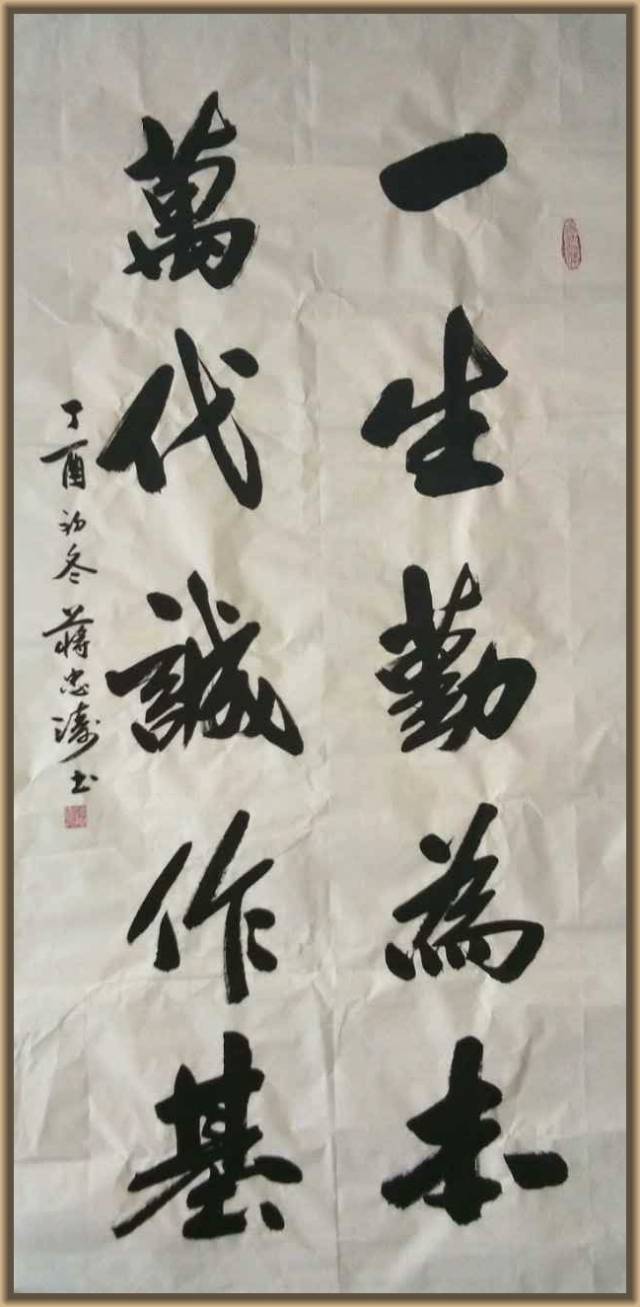 一生勤為本
萬代誠作基
丁酉初冬蔣忠濤书